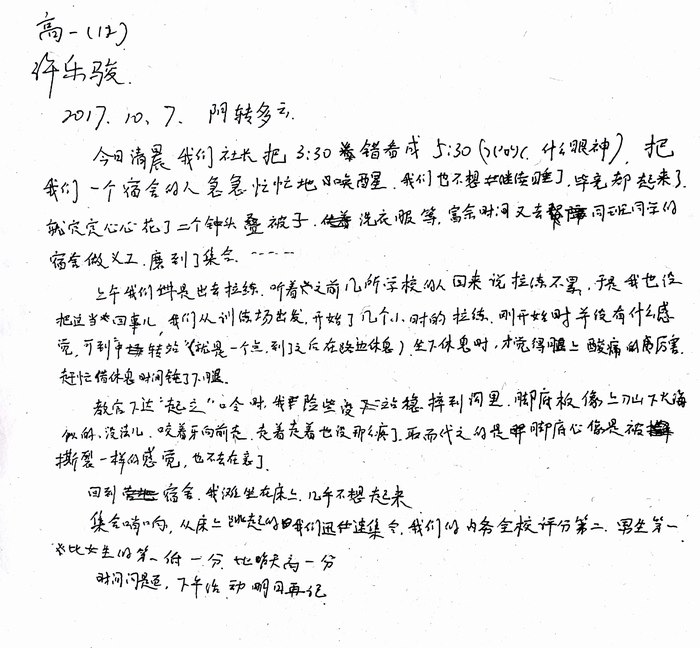 高一(12)
许乐骏
2017.10.7. 阴转多云.
今日清晨我们社长把3:30错看成5:30(什么眼神),把
我们一个宿舍的人急急忙忙地唤醒.我们也不想继续睡了,毕竟都起来了,
就定定心心花了二个钟头叠被子.洗衣服等,富余时间又去帮同班同学的
宿舍做义工,磨到了集合······
上午我们是出去拉练.听着之前几所学校的人回来说拉练不累,于是我也没
把这当回事儿,我们从训练场出发,开始了几个小时的拉练.刚开始时并没有什么感
觉,可到中转站(就是一个点,到了之后在路边休息)坐下休息时,才觉得腿上酸痛的厉害.
赶忙借休息时间锤了下腿.
教官下达"起立"口令时,我险些没站稳摔到沟里.脚底板像上刀山下火海
似的.没法儿.咬着牙向前走.走着走着也没那么疼了.取而代之的是脚底心像是被
撕裂一样的感觉,也不去在意了.
回到宿舍.我滩坐在床上.几乎不想起来
集合哨响,从床上跳起的我们迅速集合.我们的内务全校评分第二.男生第一
比女生的第一低一分.比昨天高一分
时间问题,下午活动明日再记